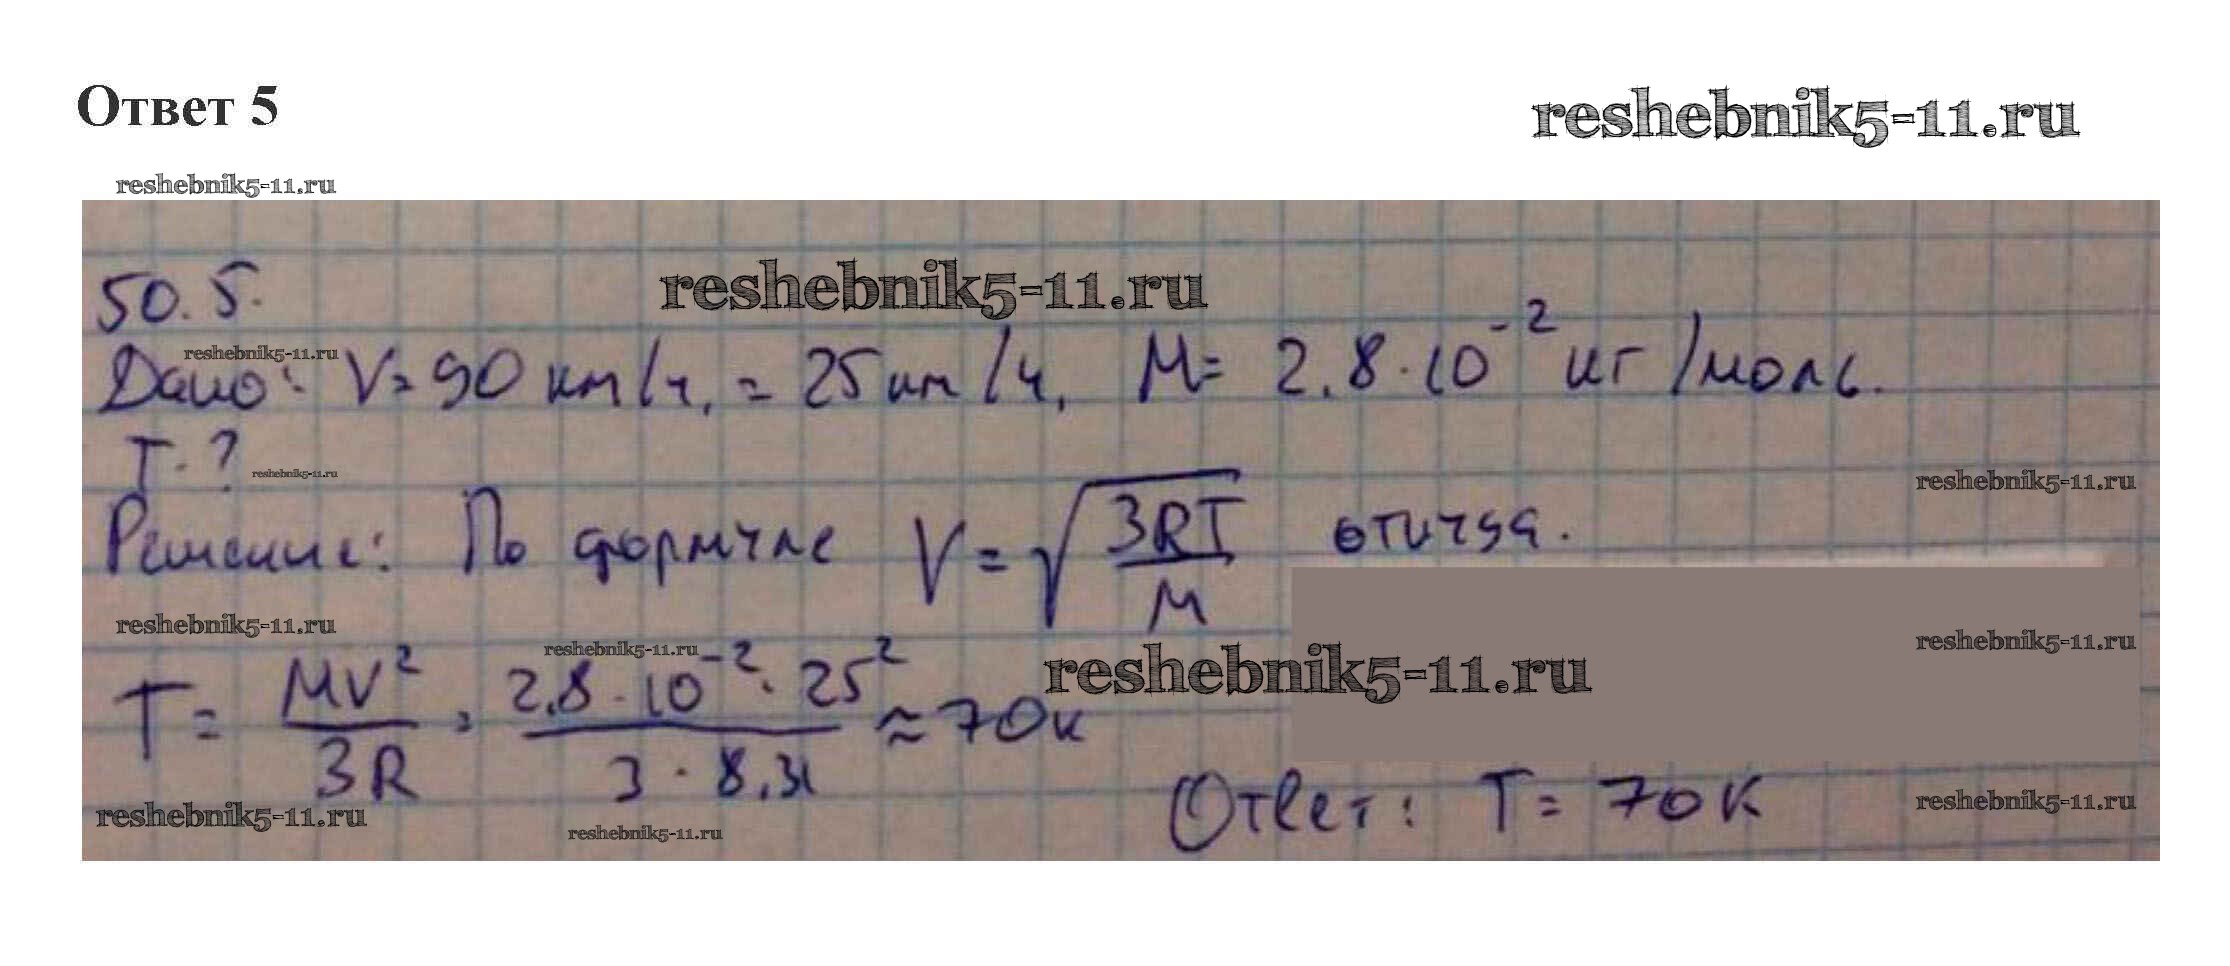 Ответ 5
reshebnik5-11.ru
reshebnik5-11.ru
50.5.
reshebnik5-11.ru
reshebnik5-11.ru
Дано: V=90 км/ч, = 25 км/ч, M= 2,8·10⁻² кг/моль.
T-?
reshebnik5-11.ru
reshebnik5-11.ru
Решение: По формуле V = √(3RT/M) отсюда.
reshebnik5-11.ru
reshebnik5-11.ru
reshebnik5-11.ru
reshebnik5-11.ru
T = MV²/3R = 2,8·10⁻²·25²/3·8,31 ≈ 70К
Ответ: T = 70К
reshebnik5-11.ru
reshebnik5-11.ru
reshebnik5-11.ru